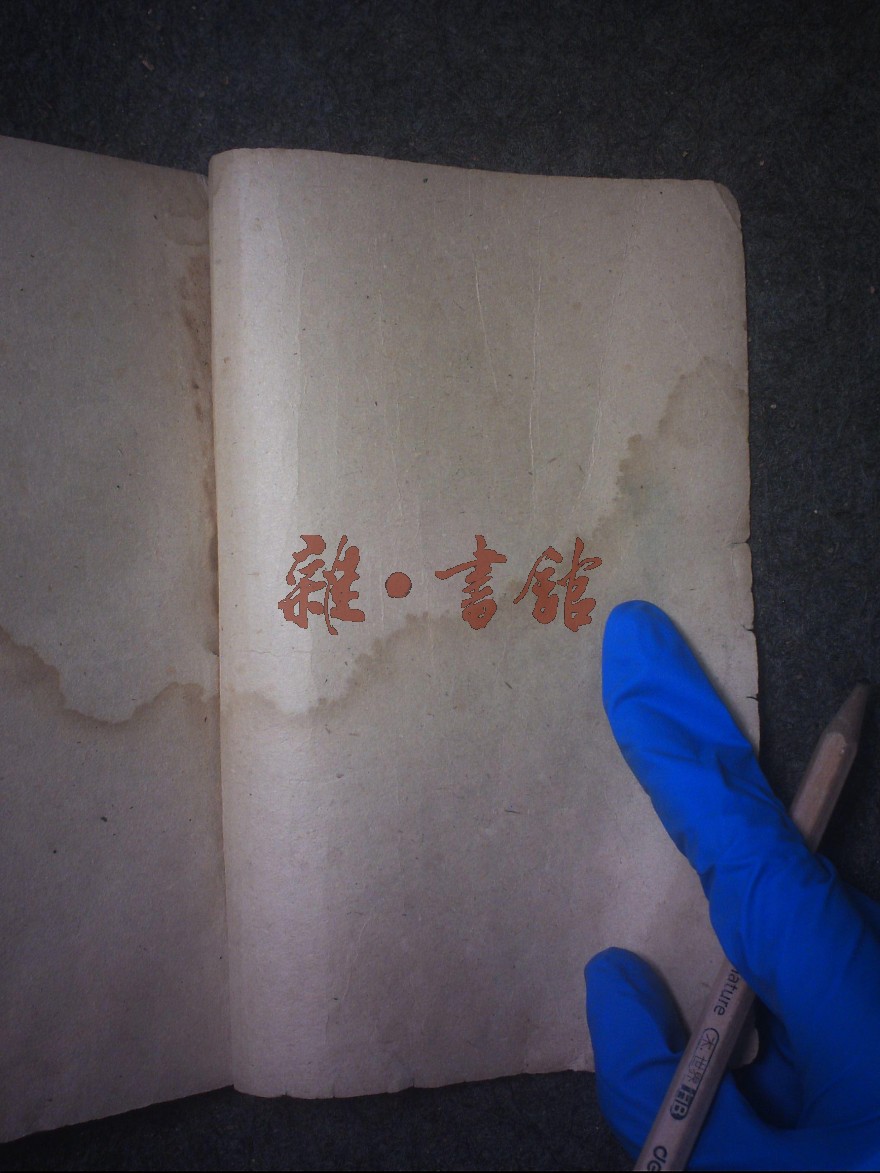 雜·書館
nature
HB
de